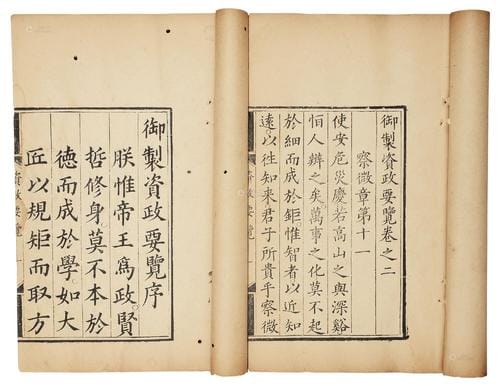 御製資政要覽序
朕惟帝王爲政賢
哲修身莫不本於
德而成於學如大
匠以規矩而取方
資政要覽
御製資政要覽卷之二
察微章第十一
使安危災慶若高山之與深谿
怕人辨之矣萬事之化莫不起
於細而成於鉅惟智者以近知
遠以徃知来君子所貴乎察微
資政要覽